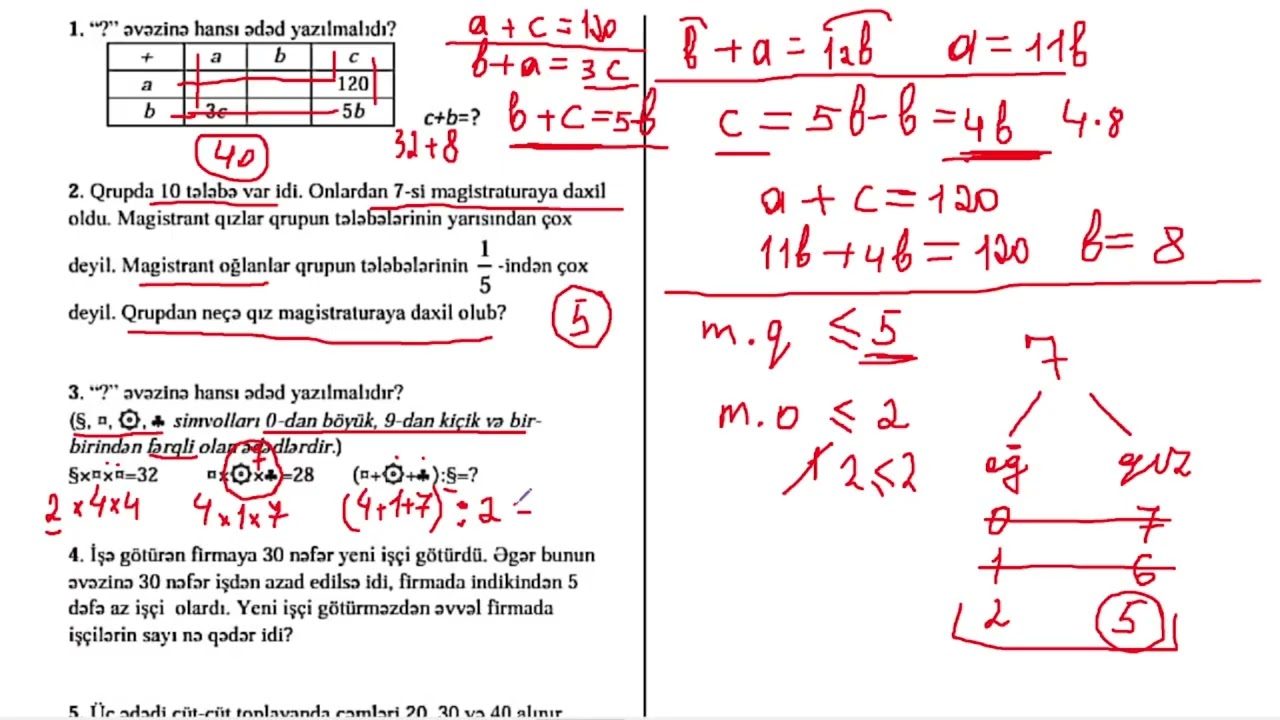 1. “?” əvəzinə hansı ədəd yazılmalıdır?
+ a b c
a 120
b 3c 5b
c+b=?
32+8
40
a + c = 120
b + a = 3c
b + c = 5b
b + a = 12b a = 11b
c = 5b - b = 4b 4·8
a + c = 120
11b + 4b = 120 b = 8
2. Qrupda 10 tələbə var idi. Onlardan 7-si magistraturaya daxil
oldu. Magistrant qızlar qrupun tələbələrinin yarısından çox
deyil. Magistrant oğlanlar qrupun tələbələrinin 1/5 -indən çox
deyil. Qrupdan neçə qız magistraturaya daxil olub?
5
m.q ≤ 5
m.o ≤ 2
1 2 ≤ 2
7
oğ qız
0 7
1 6
2 5
3. “?” əvəzinə hansı ədəd yazılmalıdır?
(§, ¤, ۞, ♣ simvolları 0-dan böyük, 9-dan kiçik və bir-
birindən fərqli olan ədədlərdir.)
7
§×¤×¤=32 ¤×۞×♣=28 (¤+۞+♣):§=?
2 × 4 × 4 4 × 1 × 7 (4+1+7) : 2 =
4. İşə götürən firmaya 30 nəfər yeni işçi götürdü. Əgər bunun
əvəzinə 30 nəfər işdən azad edilsə idi, firmada indikindən 5
dəfə az işçi olardı. Yeni işçi götürməzdən əvvəl firmada
işçilərin sayı nə qədər idi?
5. Üç ədədi cüt-cüt toplayanda cəmləri 20, 30 və 40 alınır.